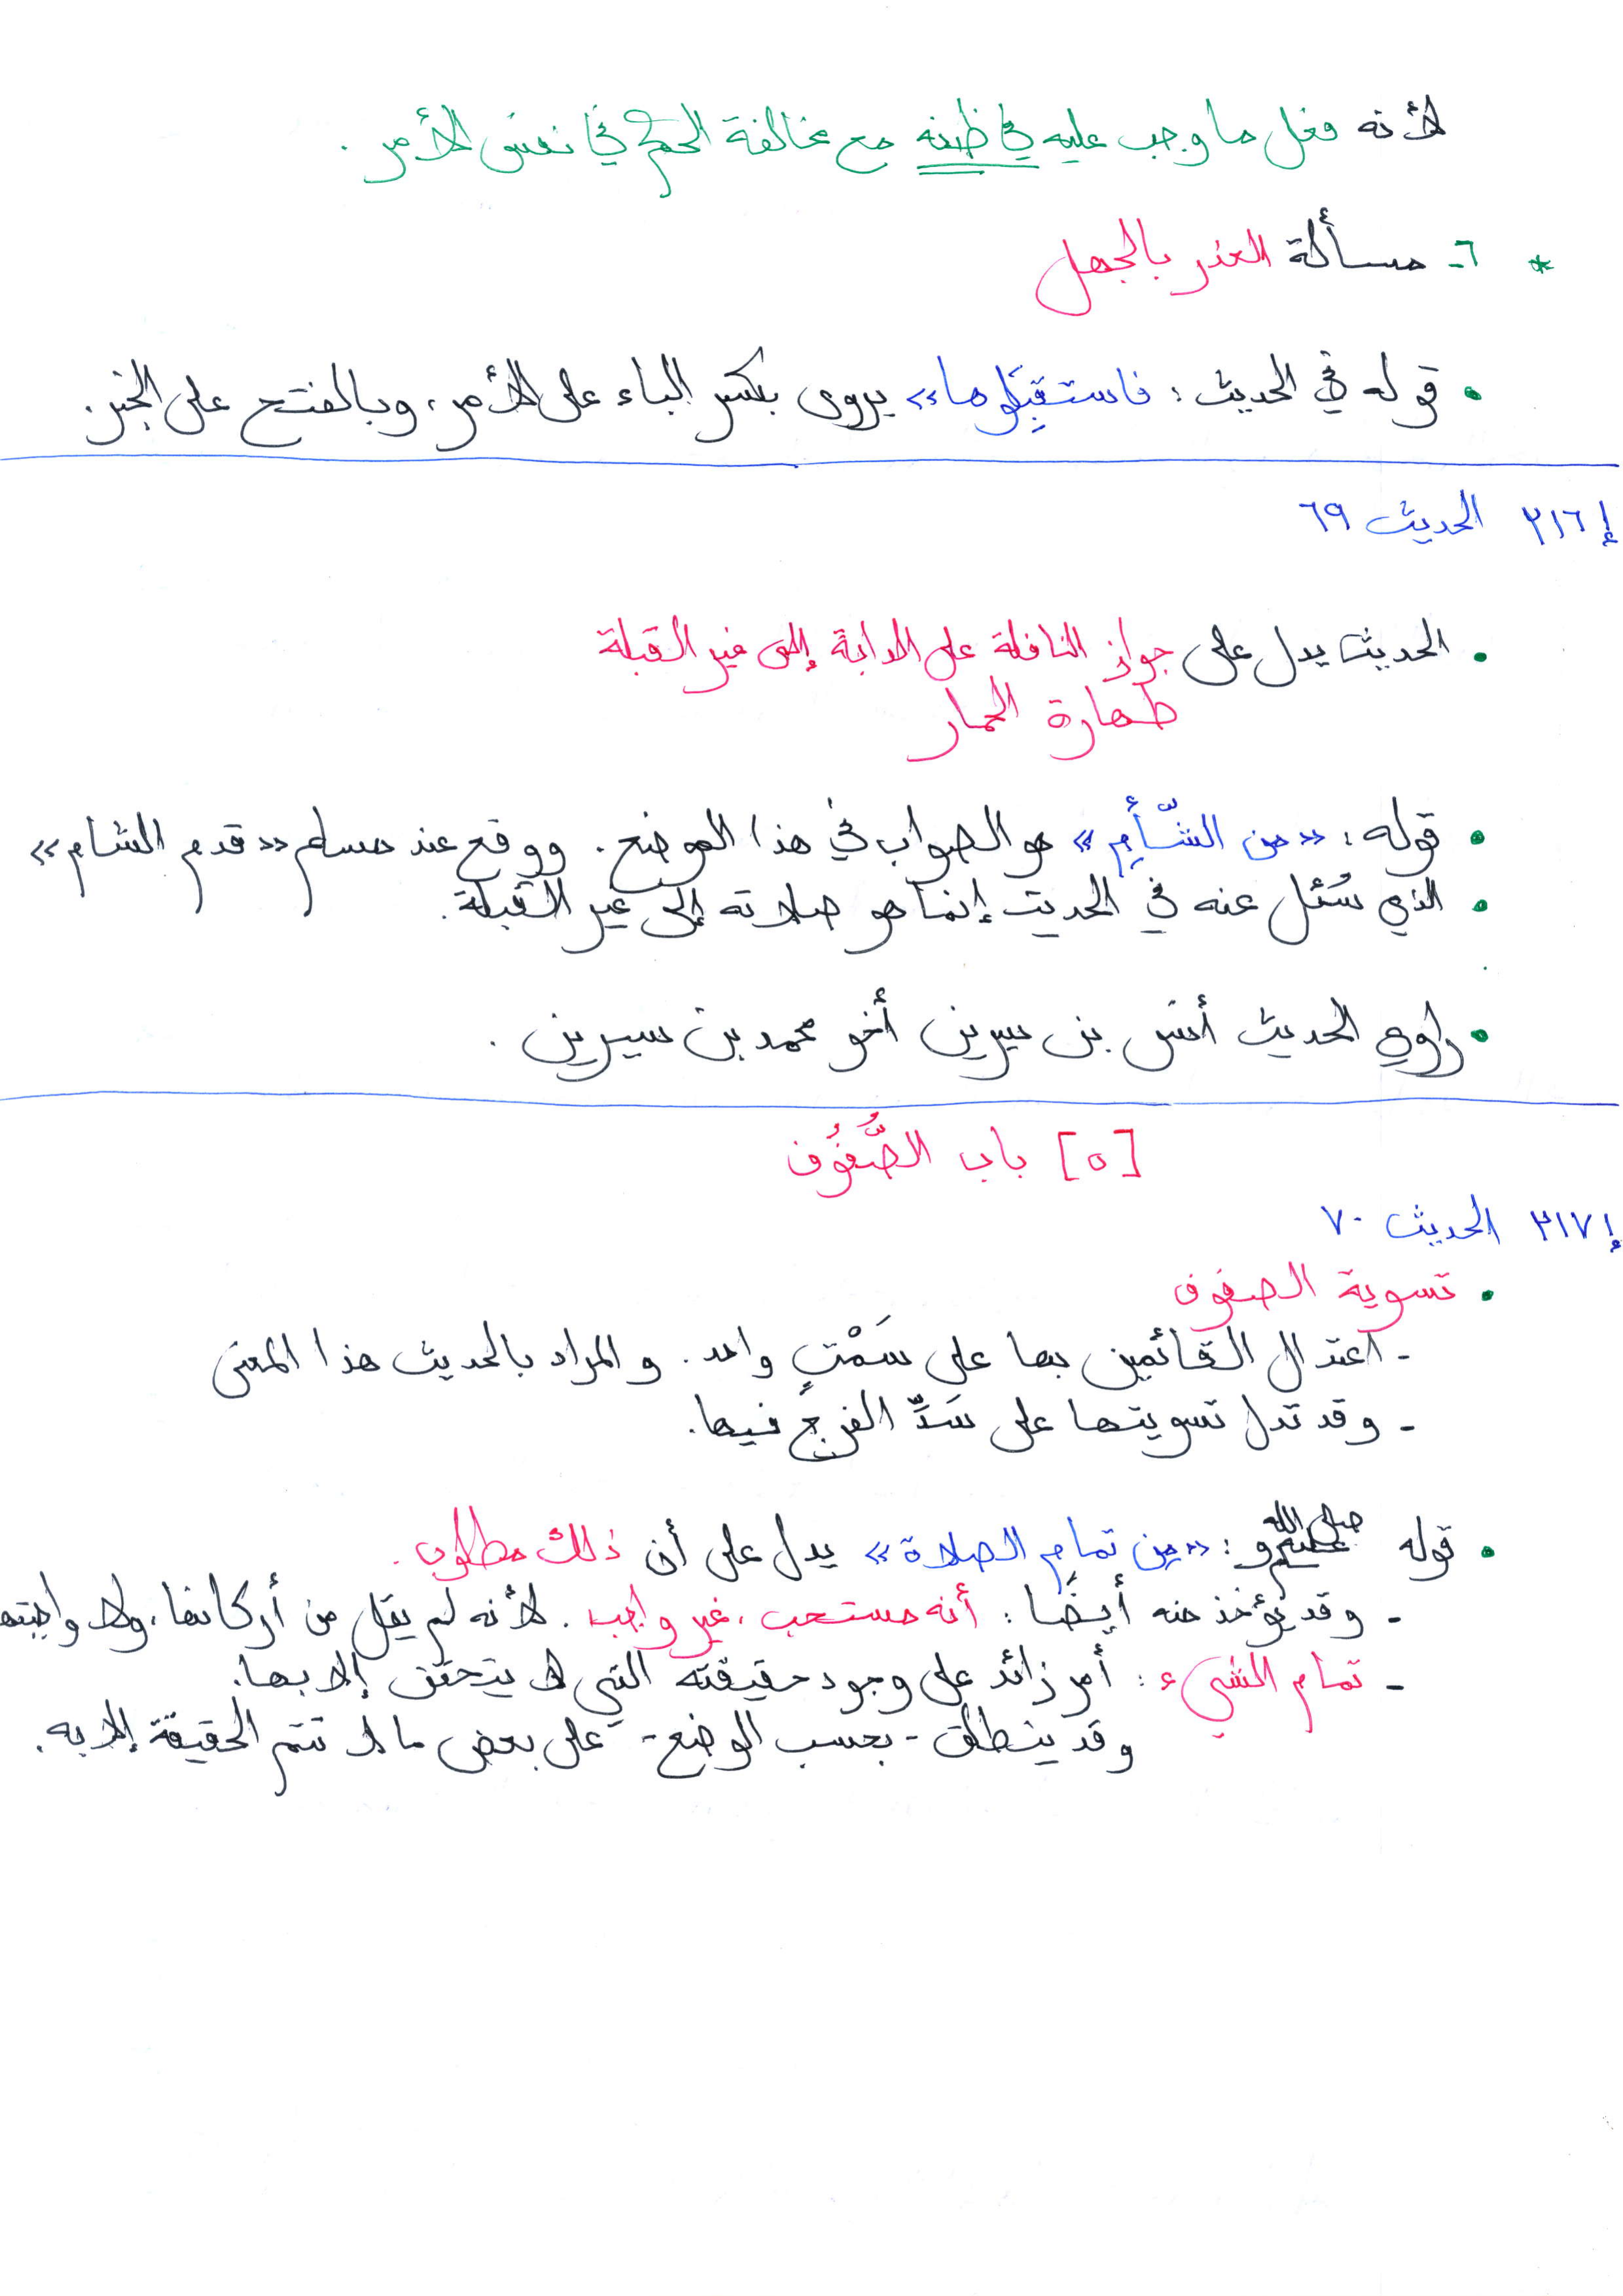 لأنه فعل ما وجب عليه في ظنه مع مخالفة الحكم في نفس الأمر .
* ٦- مسألة العذر بالجهل
• قوله في الحديث : فاستقبِلَوها» يروى بكسر الباء على الأمر ، وبالفتح على الخبر .
إ٢١٦ الحديث ٦٩
• الحديث يدل على جواز النافلة على الدابة إلى غير القبلة
طهارة الحمار
• قوله : «من الشّأم» هو الصواب في هذا الموضع . ووقع عند مسلم «قدم الشام»
• الذي سُئل عنه في الحديث إنما هو صلاته إلى غير القبلة .
• راوي الحديث أنس بن سيرين أخو محمد بن سيرين .
[٥] باب الصُّفُوف
إ٢١٧ الحديث ٧٠
• تسوية الصفوف
- اعتدال القائمين بها على سَمْتٍ واحد . والمراد بالحديث هذا المعنى
- وقد تدل تسويتها على سَدِّ الفرج فيها .
• قوله صلى الله عليه و : «من تمام الصلاة» يدل على أن ذلك مطلوب .
- وقد يؤخذ منه أيضًا : أنه مستحب ، غير واجب . لأنه لم يقل من أركانها ، ولا واجبته
- تمام الشيء : أمر زائد على وجود حقيقته التي لا يتحقق إلا بها .
وقد ينطلق - بحسب الوضع - على بعض ما لا تتم الحقيقة إلا به .